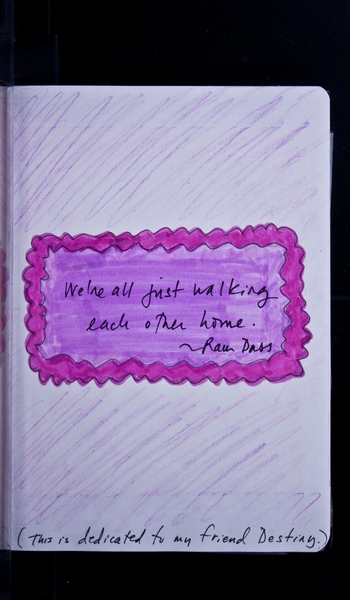 We're all just walking
each other home.
~Ram Dass
(This is dedicated to my friend Destiny.)